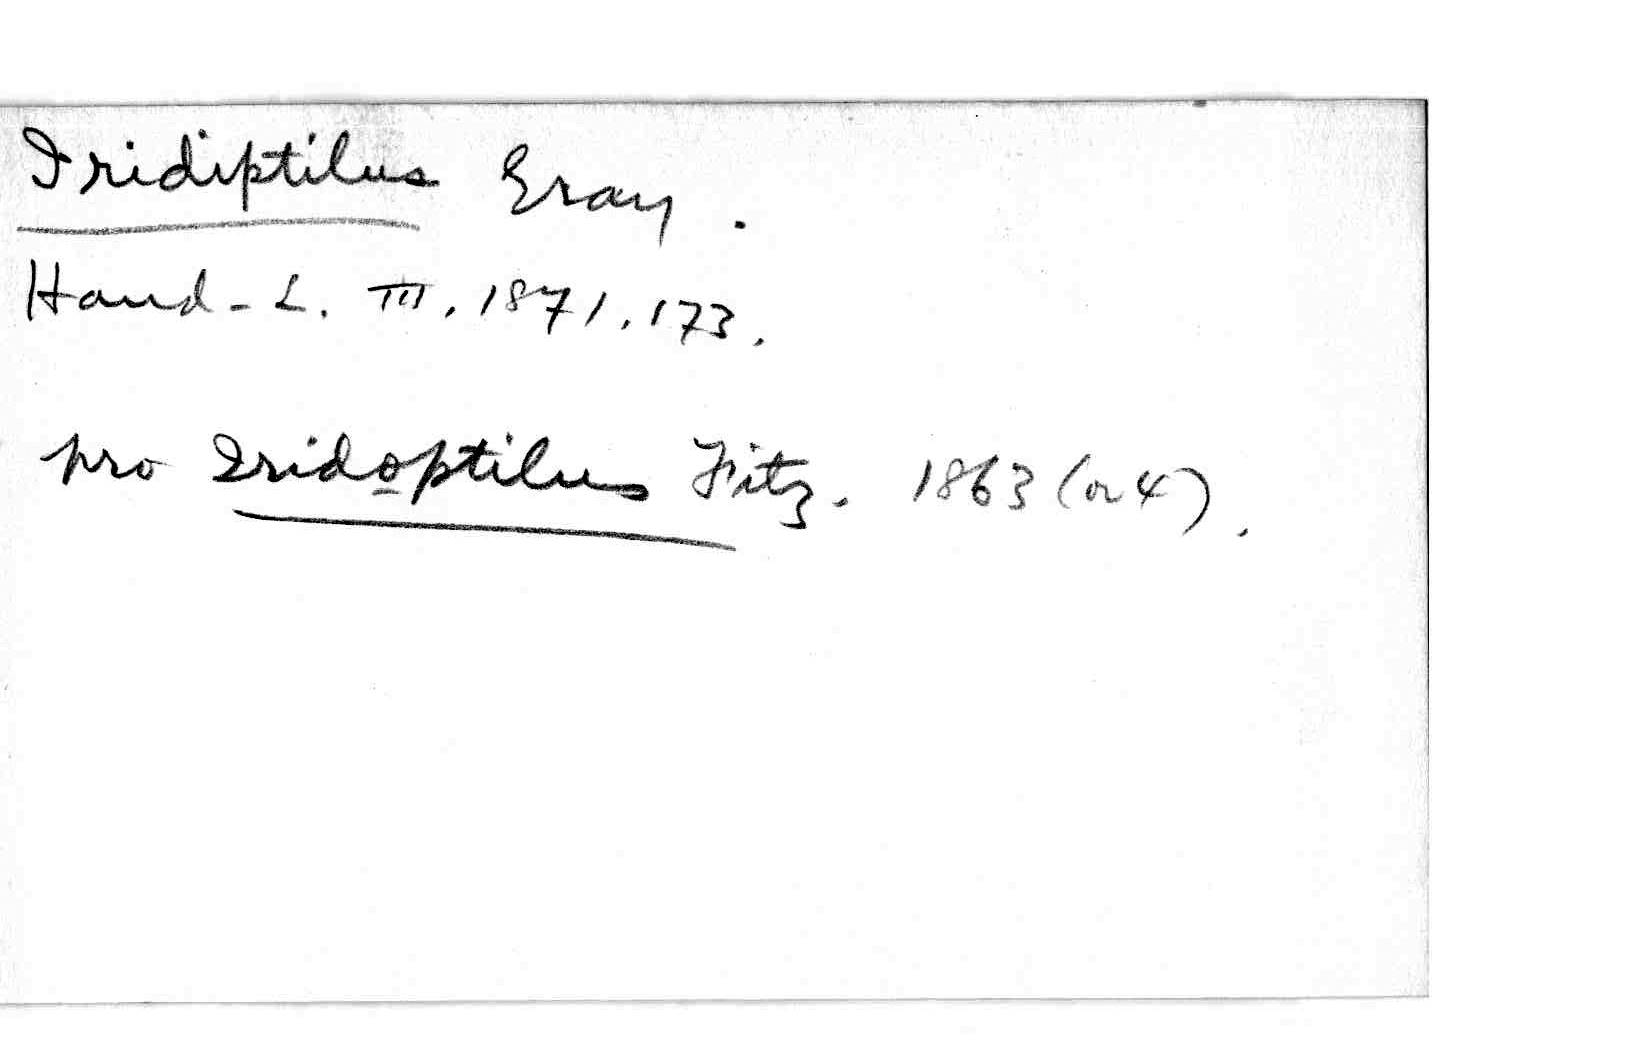 Iridiptilus Gray.
Hand-L. III, 1871, 173.
pro Iridoptilus Fitz. 1863 (or 4).